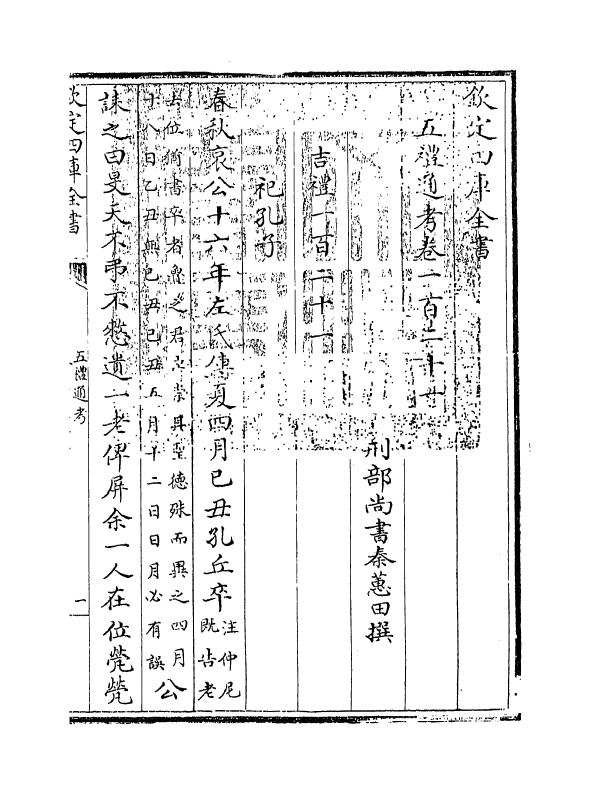 欽定四庫全書
五禮通考卷一百二十一
刑部尚書秦蕙田撰
吉禮一百二十一
祀孔子
春秋哀公十六年左氏傳夏四月己丑孔丘卒注仲尼既告老
去位猶書卒者魯之君臣宗其聖德殊而異之四月
十八日乙丑無己丑己丑五月十二日日月必有誤公
誄之曰旻天不弔不憖遺一老俾屏余一人在位煢煢
欽定四庫全書
五禮通考
一